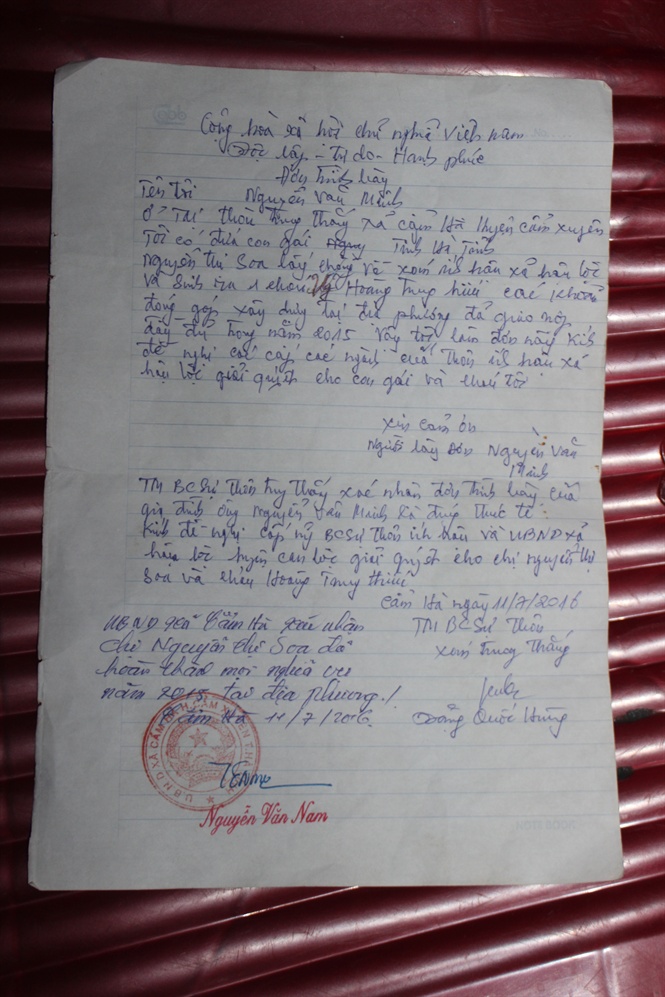 Cộng hòa xã hội chủ nghĩa Việt nam
Độc lập - Tự do - Hạnh phúc
Đơn trình bày
Tên tôi Nguyễn Văn Minh
Ở Tại thôn Trung thắng xã cẩm Hà Huyện cẩm xuyên
Tôi có đứa con gái Tỉnh Hà Tĩnh
Nguyễn Thị Soa lấy chồng về xóm ích hậu xã hậu lộc
và sinh ra 1 cháu Hoàng Trung hiếu các khoản
đóng góp xây dựng tại địa phương đã giao nộp
đầy đủ trong năm 2015 Vậy tôi làm đơn này kính
đề nghị các cấp các ngành của thôn ích hậu xã
hậu lộc giải quyết cho con gái và cháu tôi
xin cảm ơn
Người làm đơn Nguyễn Văn
Minh
TM BCSự thôn Trung Thắng xác nhận đơn trình bày của
gia đình ông Nguyễn Văn Minh là đúng thực tế
Kính đề nghị cấp BCSự thôn ích hậu và UBND xã
hậu lộc huyện can lộc giải quyết cho chị nguyễn thị
Soa và cháu Hoàng Trung hiếu
cẩm Hà ngày 11/7/2016
UBND xã Cẩm Hà xác nhận
TM BCSự thôn
chị Nguyễn Thị Soa đã
xóm Trung Thắng
hoàn thành mọi nghĩa vụ
năm 2015 tại địa phương!
Cẩm Hà 11/7/2016
Quốc Hùng
Nguyễn Văn Nam